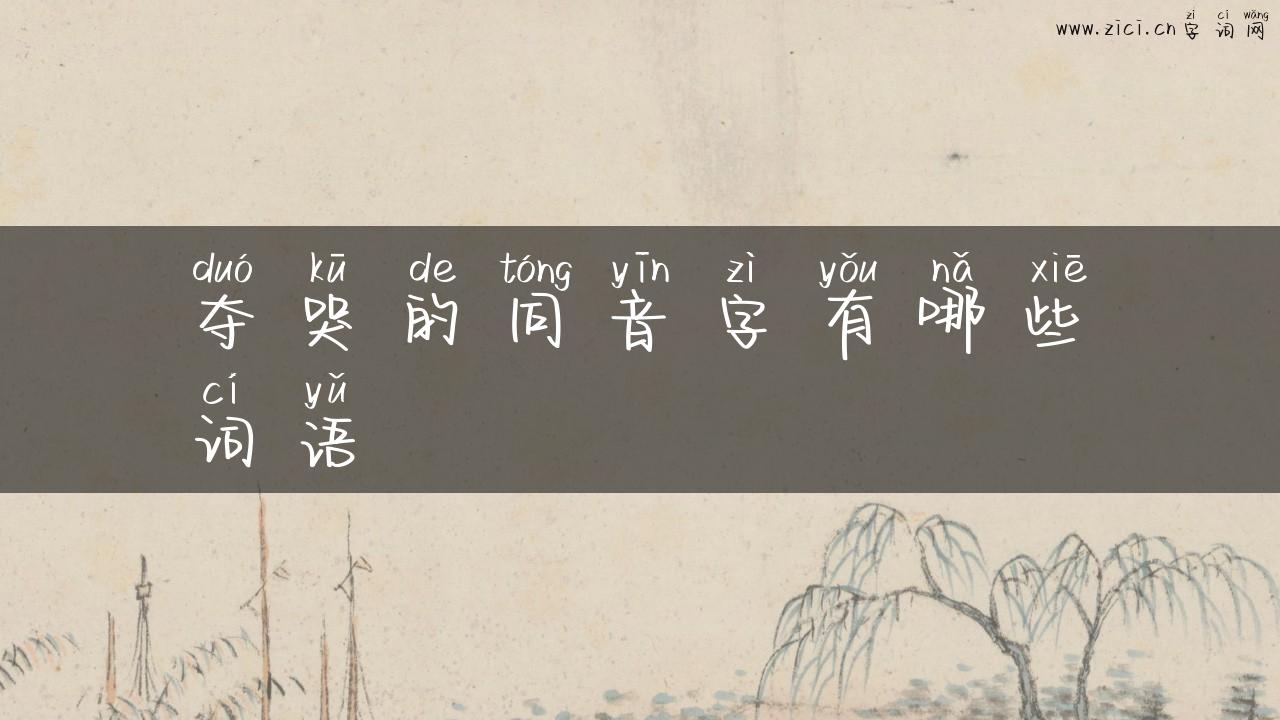 zì cí wǎng
www.zici.cn 字词网
duó kū de tóng yīn zì yǒu nǎ xiē
夺哭的同音字有哪些
cí yǔ
词语